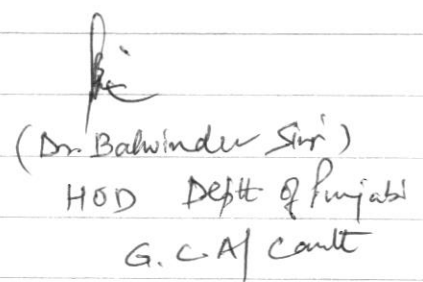 (Dr. Balwinder Singh)
HOD Deptt of Punjabi
G. C. A/ Cantt